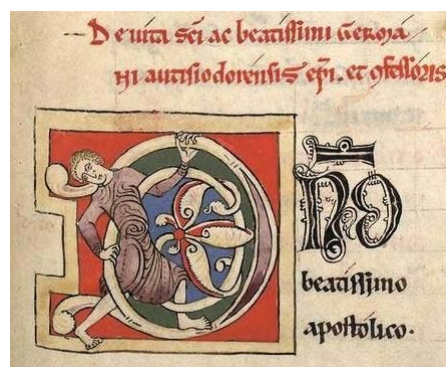 De uita sc̄i ac beatissimi Germa
Ni autisiodorensis ep̄i. et ꝯfessoris
DN̄O
beatissimo
apostolico.